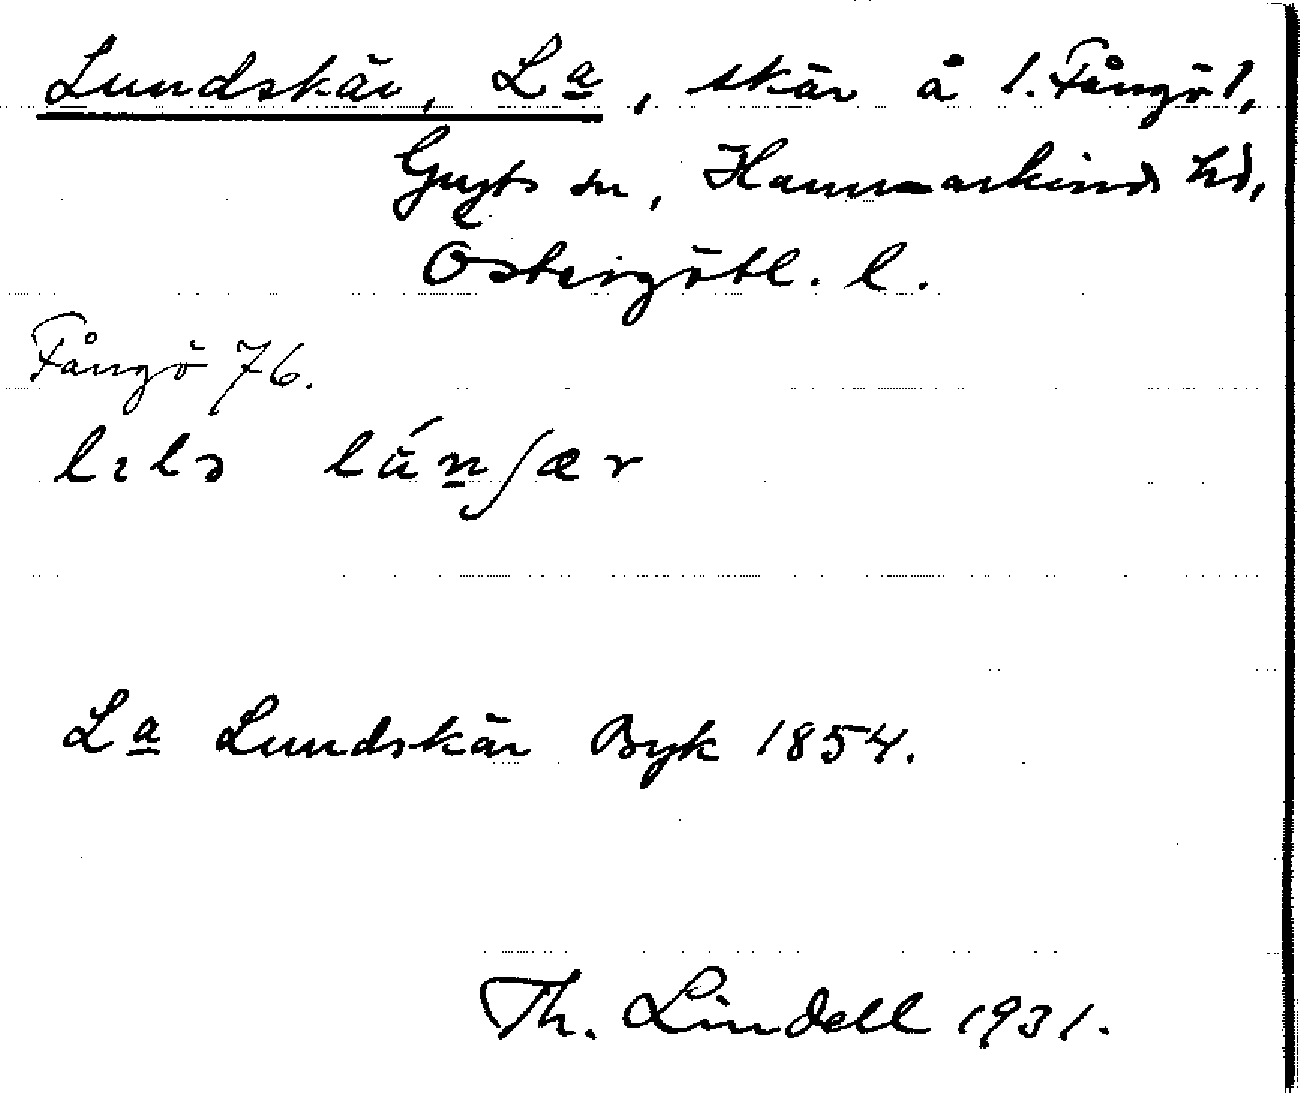 Lundskär, La, skär å l. Fångö l,
Gryts sn, Hammarkinds hd,
Östergötl. l.
Fångö 76.
La Lundskär Byk 1854.
Th. Lindell 1931.